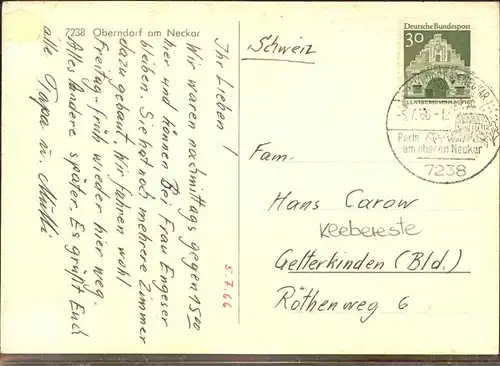 7238 Oberndorf am Neckar
Ihr Lieben!
Wir waren nachmittags gegen 15 00
hier und können Bei Frau Engeser
bleiben. Sie hat noch mehrere Zimmer
dazu gebaut. Wir fahren wohl
Freitag-früh wieder hier weg.
Alles andere später. Es grüßt Euch
alle Papa u. Mutti
5.7.66
Schweiz
Deutsche Bundespost
30
FLENSBURG/SCHLESWIG
-5.7.66-12
Perle
am oberen Neckar
7238
Fam.
Hans Carow
Gelterkinden (Bld.)
Röthenweg 6